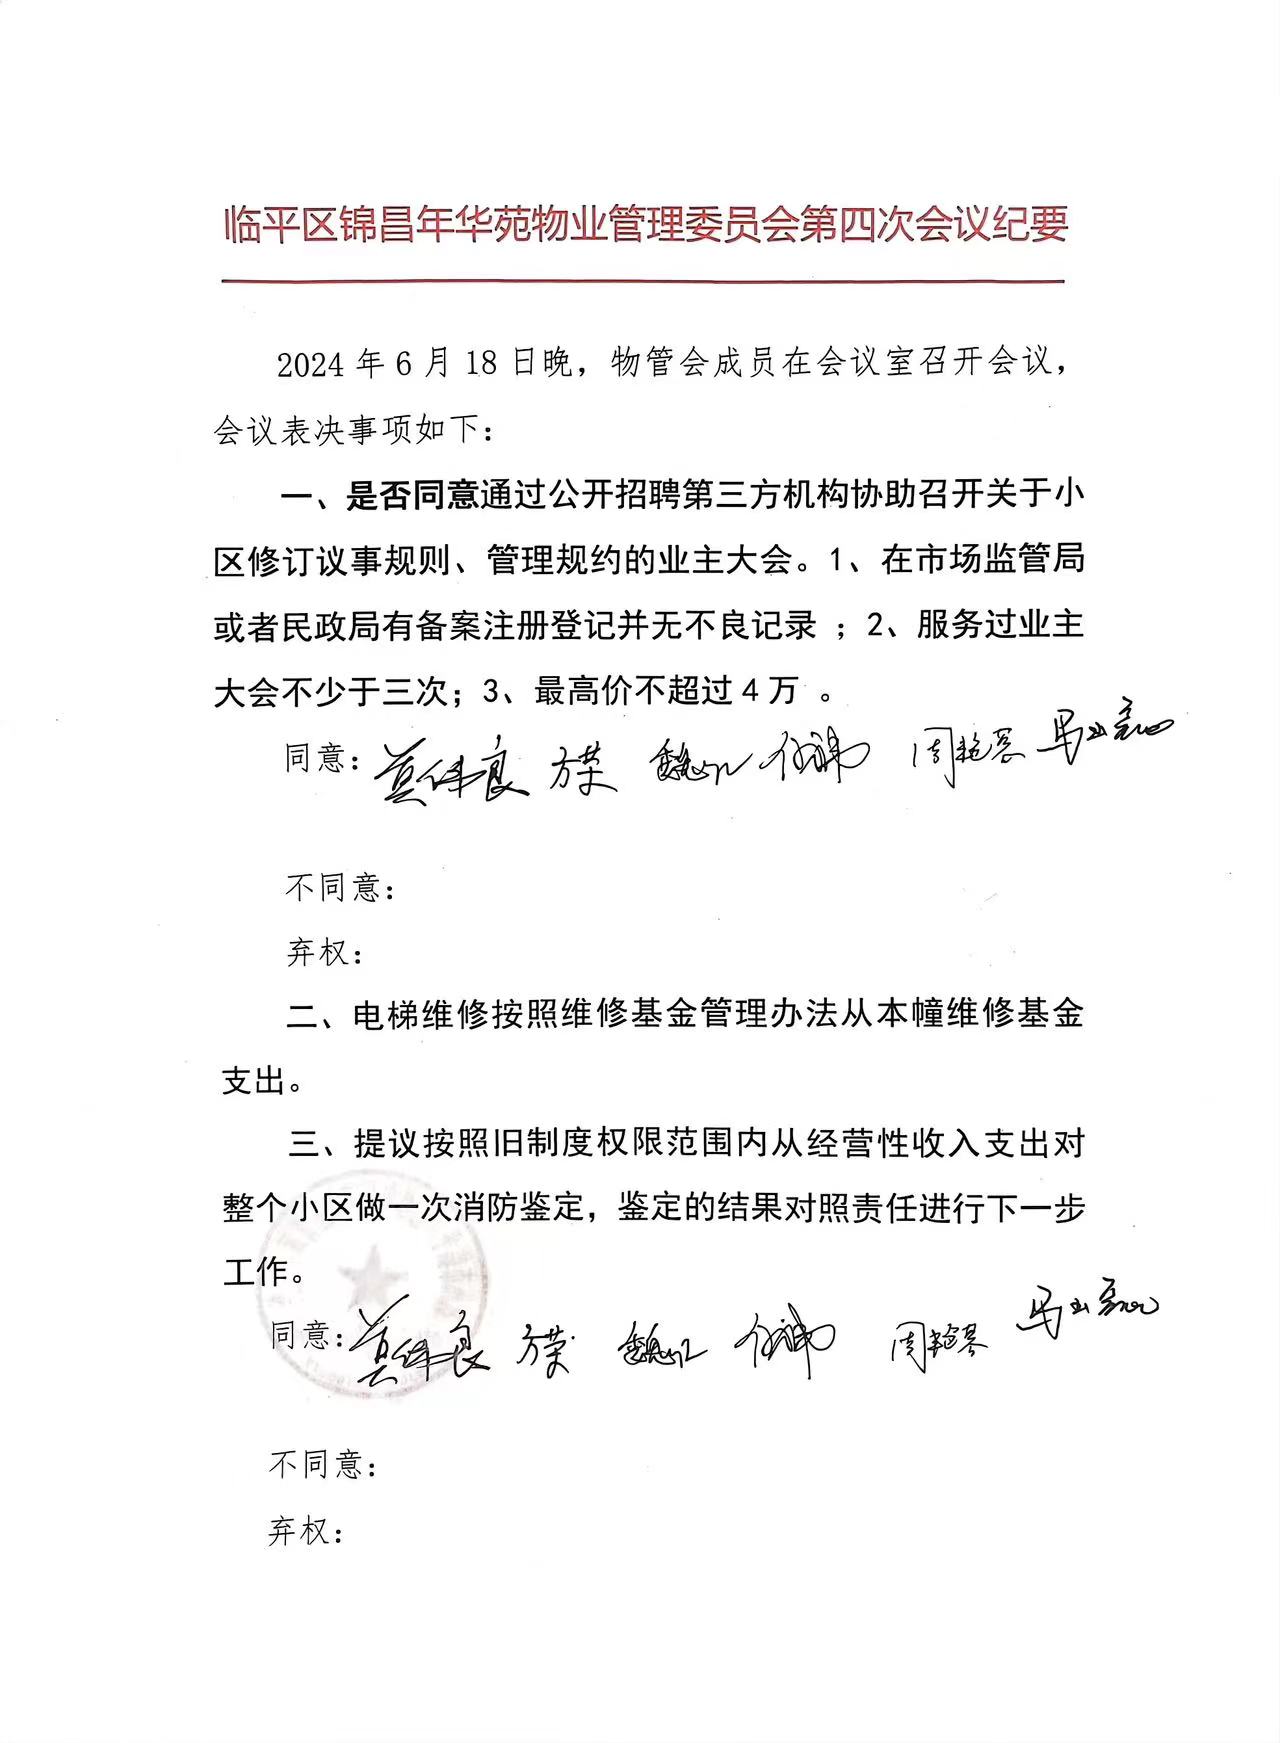 临平区锦昌年华苑物业管理委员会第四次会议纪要
2024年6月18日晚，物管会成员在会议室召开会议，
会议表决事项如下：
一、是否同意通过公开招聘第三方机构协助召开关于小
区修订议事规则、管理规约的业主大会。1、在市场监管局
或者民政局有备案注册登记并无不良记录 ；2、服务过业主
大会不少于三次；3、最高价不超过4万 。
同意：
不同意：
弃权：
二、电梯维修按照维修基金管理办法从本幢维修基金
支出。
三、提议按照旧制度权限范围内从经营性收入支出对
整个小区做一次消防鉴定，鉴定的结果对照责任进行下一步
工作。
同意：
不同意：
弃权：